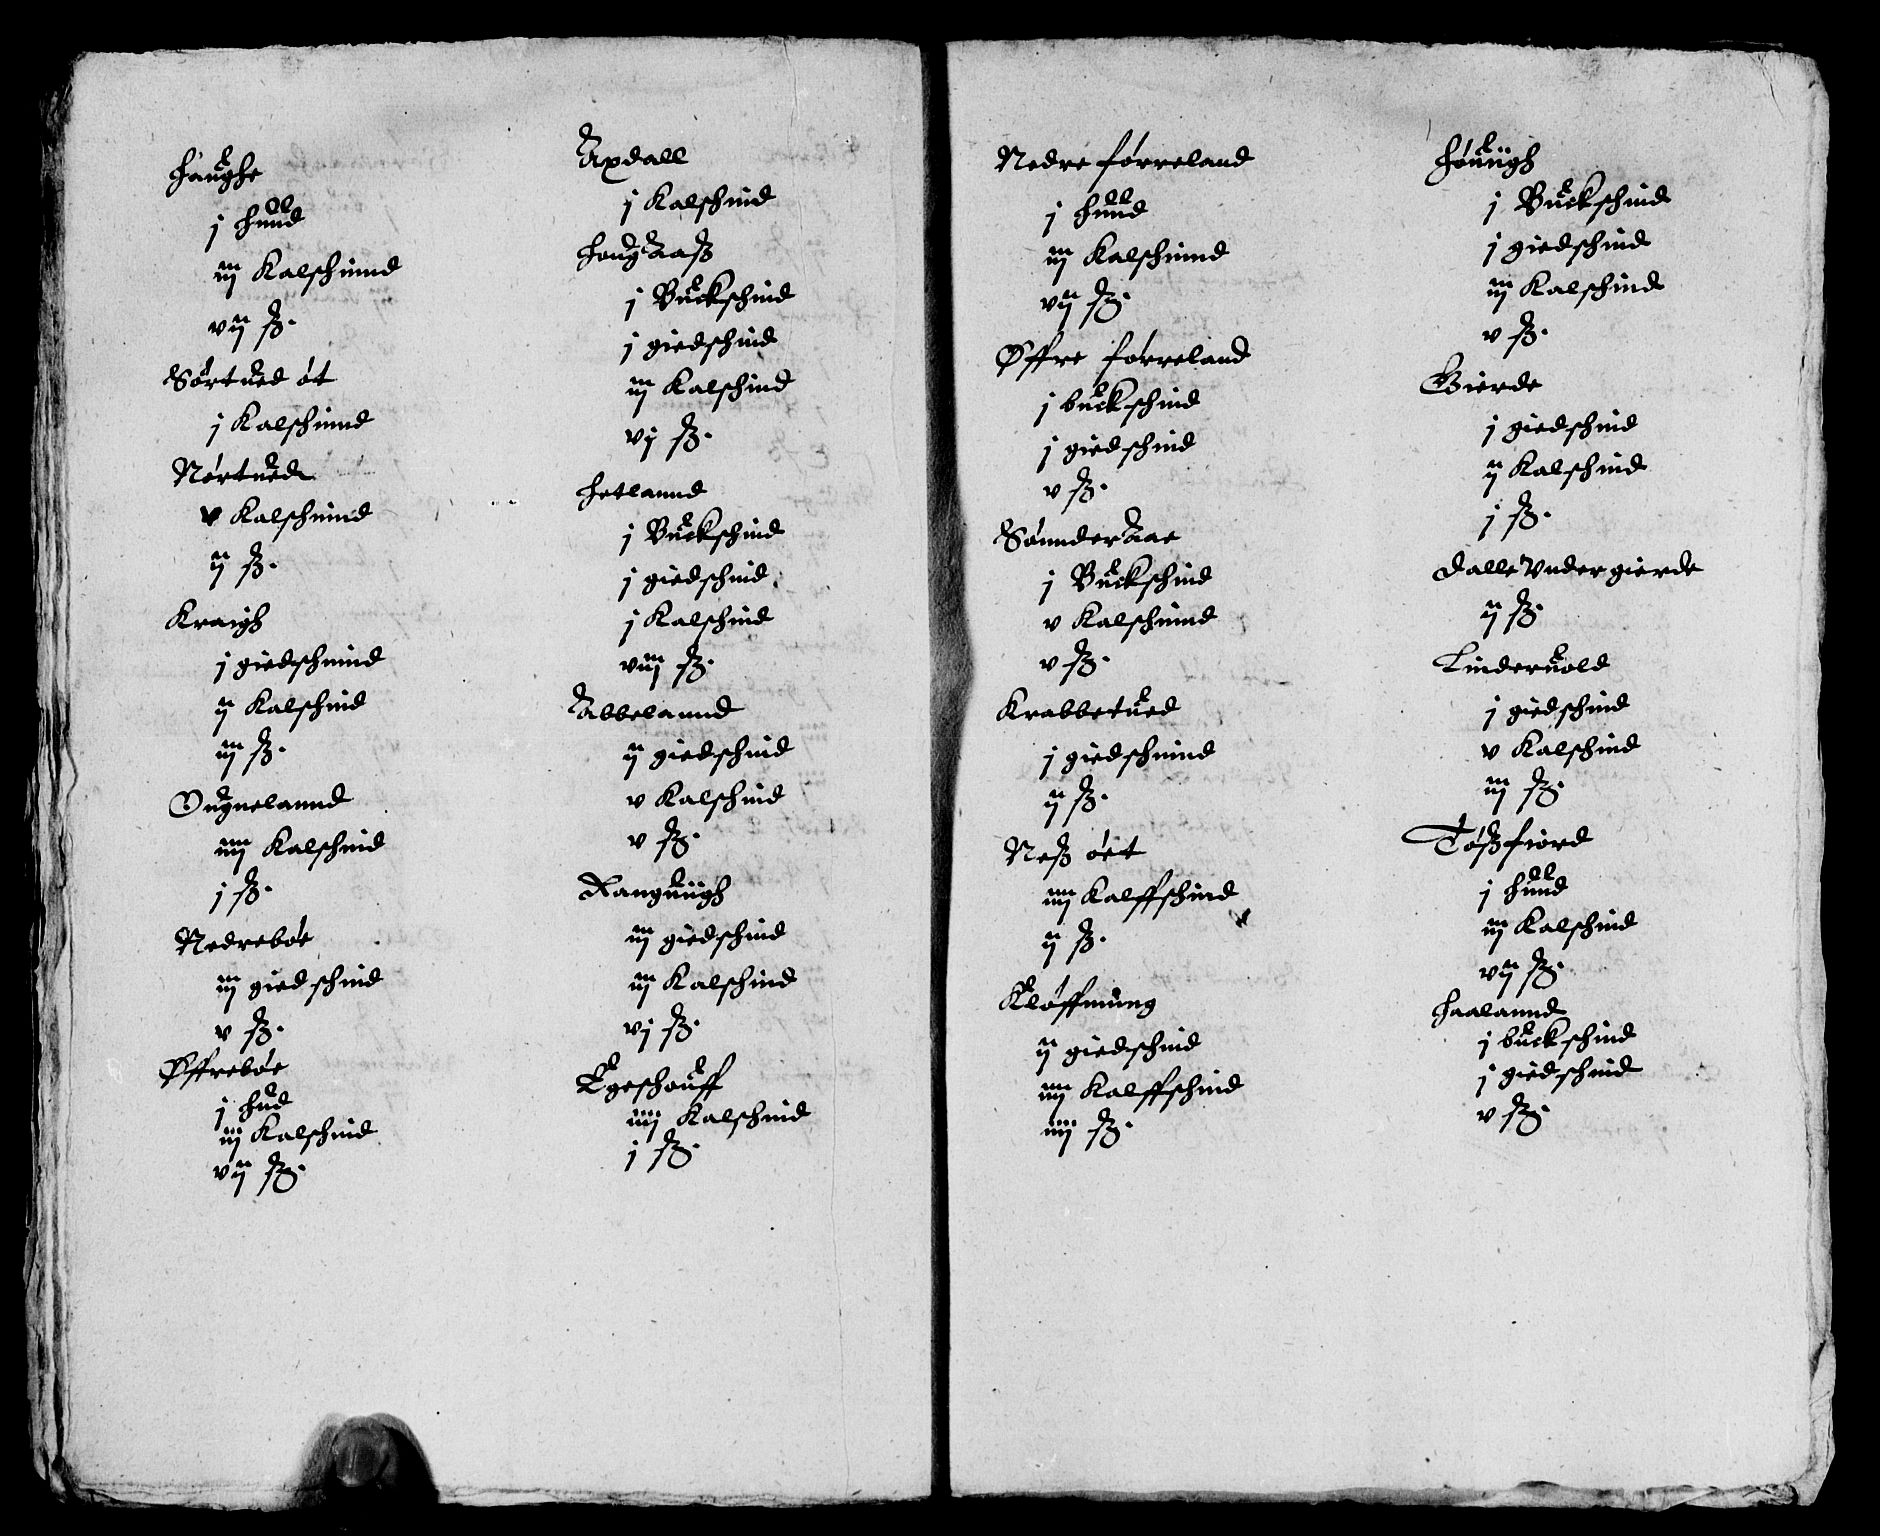 Haughe
j Huud
iij Kalschinnd
vij ß.
Sørtued øt
j Kalschinnd
Nørtued
v Kalschinnd
ij ß.
Kraigh
j giedschinnd
ij Kalschind
iij ß.
Ougnelannd
iiij Kalschind
j ß.
Nedrebøe
iij giedschind
v ß.
Øffrebøe
j Hud
iij Kalschind
vij ß.
Axdall
j Kalschind
Houg Aaß
j Buckschind
j giedschind
iij Kalschind
vj ß.
Hetlannd
j Buckschind
j giedschind
j Kalschind
viij ß.
Abbelannd
ij giedschind
v Kalschind
v ß.
Ranguiigh
iij giedschind
iij Kalschind
vj ß.
Egeschouff
iiij Kalschind
j ß.
Nedre Førreland
j Huud
iij Kalschinnd
vij ß.
Øffre Førreland
j buckschind
j giedschind
v ß.
Sønnder Aae
j Buckschind
v Kalschinnd
v ß.
Krabbetued
j giedschinnd
ij ß.
Neß øet
iiij Kalffschind
ij ß.
Kløffning
ij giedschind
iiij Kalffschind
iiij ß.
Høuiigh
j Buckschind
j giedschind
iij Kalschind
v ß.
Gierde
j giedschind
ij Kalschind
j ß.
Dalle Vnder gierde
ij ß.
Linderuold
j giedschind
v Kalschind
iij ß.
Tøßfiord
j Huud
iij Kalschind
vij ß.
Haalannd
j buckschind
j giedschind
v ß.